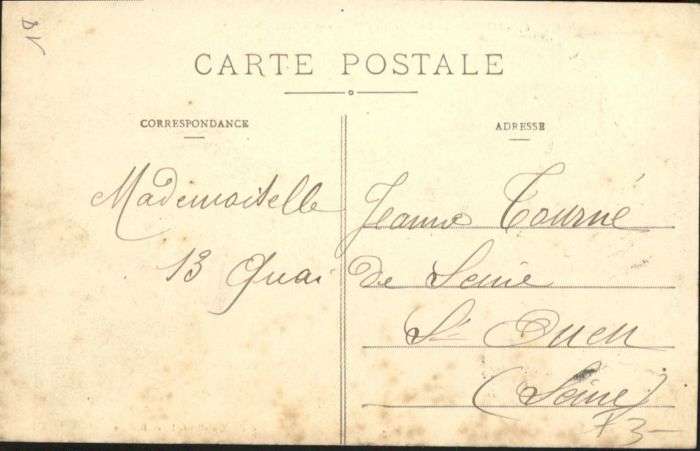 CARTE POSTALE
CORRESPONDANCE
ADRESSE
Mademoiselle Jeanne Tourné
13 Quai de Seine
St Ouen
(Seine)